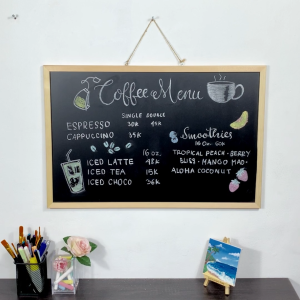 Coffee Menu
SINGLE DOUBLE
ESPRESSO 30K 45K
CAPPUCCINO 35K
Smoothies
16 Oz. 60K
16 oz.
ICED LATTE 48K
ICED TEA 15K
ICED CHOCO 36K
TROPICAL PEACH · BERRY
BLISS · MANGO MAD ·
ALOHA COCONUT